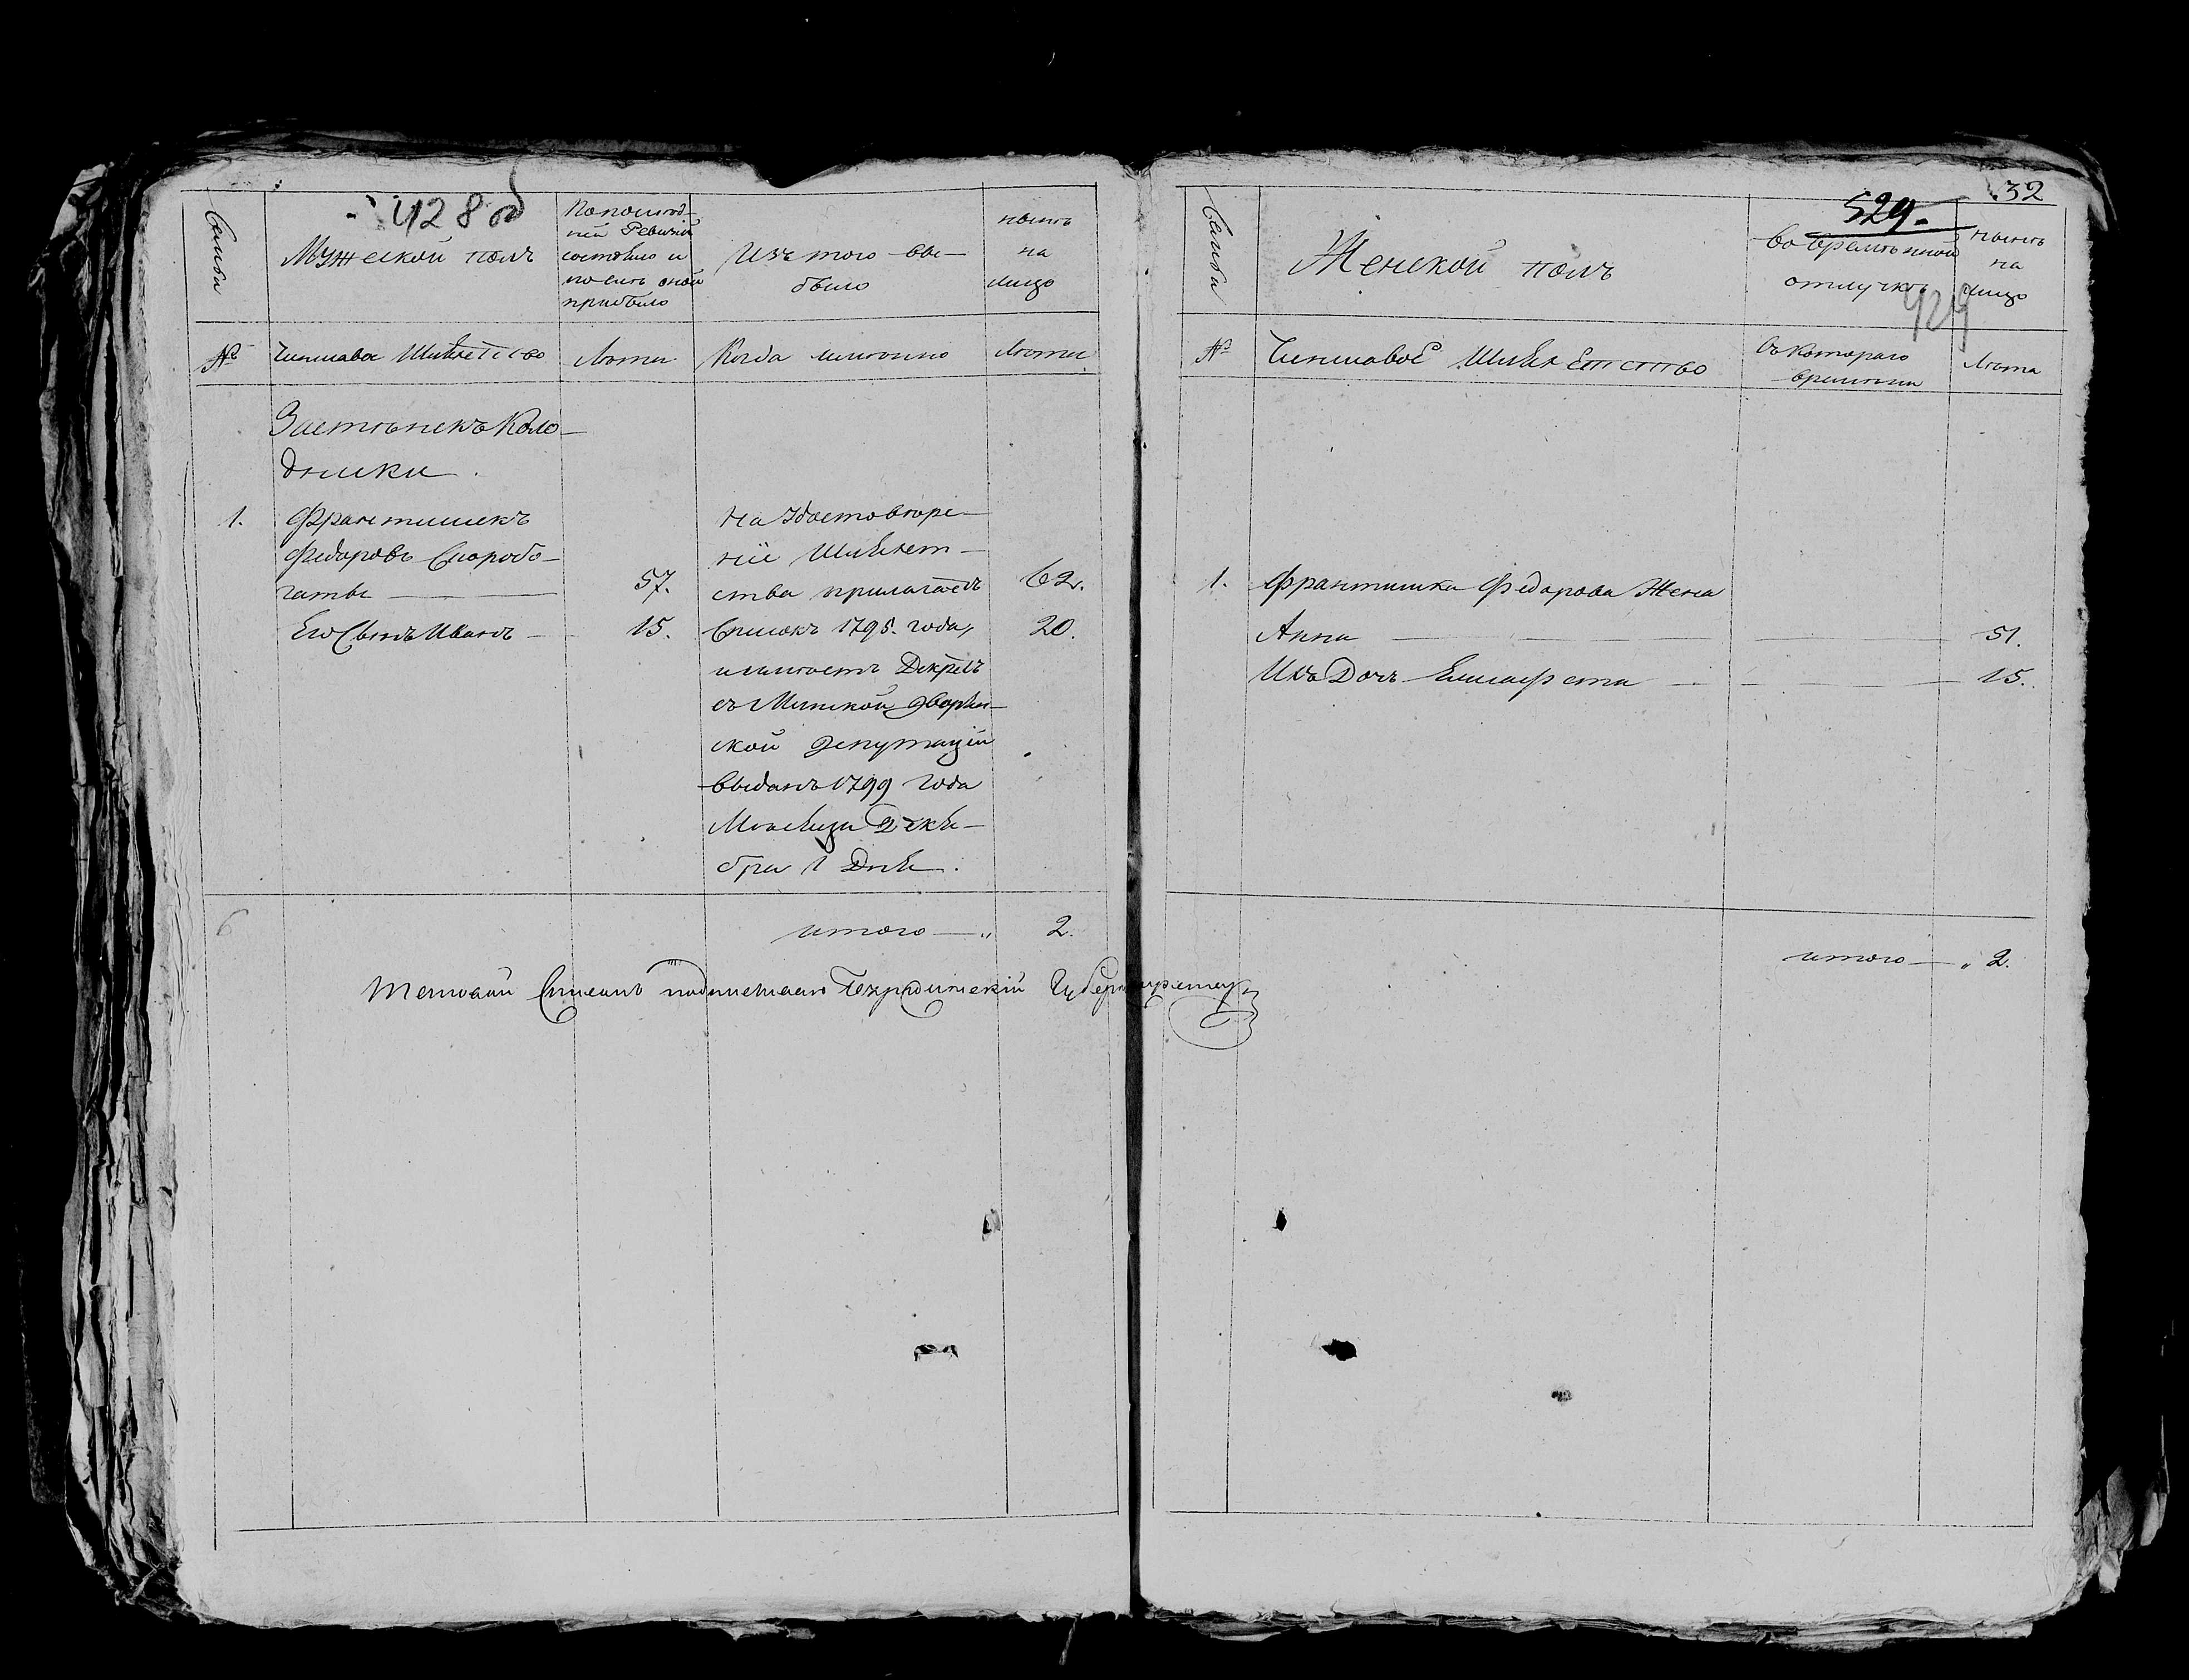 428 об
Семьи
Мужеской полъ
По послѣд-
ней Ревизіи
состояло и
послѣ оной
прибыло
Изъ того вы-
было
нынѣ
на
лицо
№
Чиншовое Шляхетство
Лѣта
Когда имянно
Лѣта
Застѣнекъ Коло-
дники
1.
Франтишекъ
Федоровъ Скоробо-
гаты
57.
62.
Его Сынъ Иванъ
15.
20.
На удостовѣре-
ніе Шляхет-
ства прилагаетъ
Списокъ 1795. года,
и имѣетъ Декретъ
съ Минской дворян-
ской депутаціи
выданъ 1799 года
Мѣсяца Декя-
бря 1 Дня.
6
итого 2.
подписалъ
32
529.
429
Семьи
Женской полъ
Во временной
отлучкѣ
нынѣ
на
лицо
№
Чиншовое Шляхетство
Съ котораго
времени
Лѣта
1.
Франтишка Федорова Жена
Анна 51.
Ихъ Дочь Елисафета 15.
итого 2.